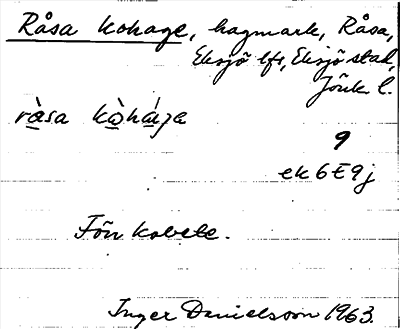 Råsa kohage, hagmark, Råsa,
Eksjö lfs, Eksjö stad,
Jönk l.
ràsa kòháge
9
ek 6E9j
F ön kobete.
Inger Danielsson 1963.